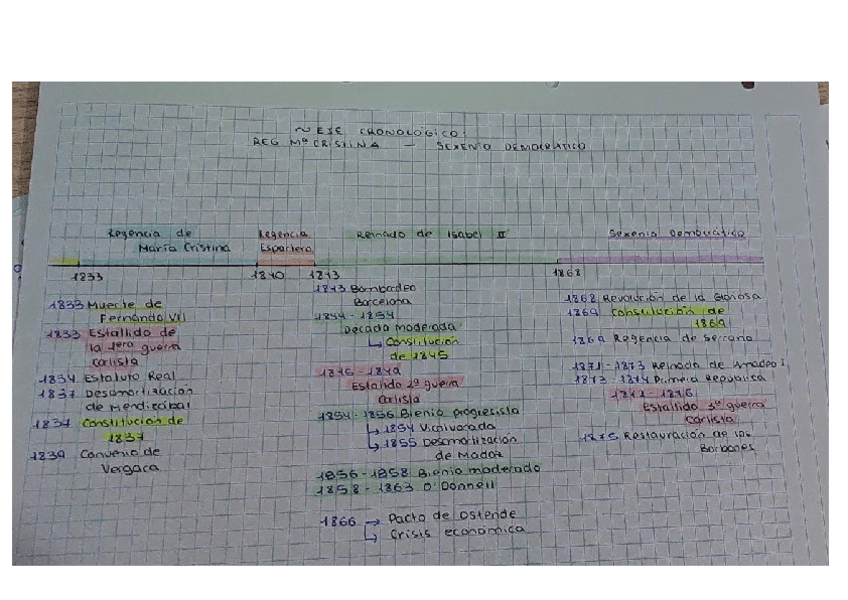 ~ EJE CRONOLÓGICO:
REG Mª CRISTINA - SEXENIO DEMOCRÁTICO
Regencia de
María Cristina
Regencia
Espartero
Reinado de Isabel II
Sexenio Democrático
1833
1840
1843
1868
1833 Muerte de
Fernando VII
1833 Estallido de
la 1era guerra
carlista
1834 Estatuto Real
1837 Desamortización
de Mendizábal
1837 Constitución de
1837
1839 Convenio de
Vergara
1843 Bombardeo
Barcelona
1844 - 1854
Década moderada
↳ Constitución
de 1845
1846 - 1849
Estallido 2ª guerra
Carlista
1854 - 1856 Bienio progresista
↳ 1854 Vicalvarada
↳ 1855 Desamortización
de Madoz
1856 - 1858 Bienio moderado
1858 - 1863 O'Donnell
1866 → Pacto de Ostende
↳ Crisis económica
1868 Revolución de la Gloriosa
1869 Constitución de
1869
1869 Regencia de Serrano
1871 - 1873 Reinado de Amadeo I
1873 - 1874 Primera República
1872 - 1876
Estallido 3ª guerra
Carlista
1875 Restauración de los
Borbones